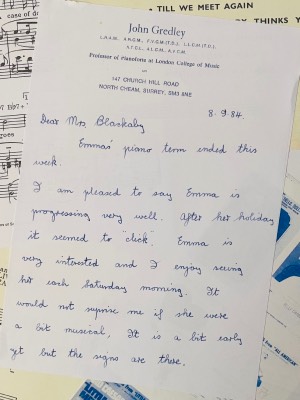 TILL WE MEET AGAIN
John Gredley
Professor of Pianoforte at London College of Music
147 CHURCH HILL ROAD
NORTH CHEAM, SURREY, SM3 8NE
8.9.84
Dear Mrs Blaskaby
Emmas' piano term ended this
week.
I am pleased to say Emma is
progressing very well. After her holiday
it seemed to "click". Emma is
very interested and I enjoy seeing
her each Saturday morning. It
would not suprise me if she were
a bit musical. It is a bit early
yet but the signs are there.